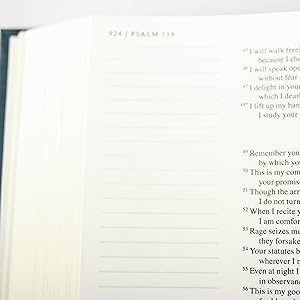 924 | PSALM 119
45 I will walk free
because I ch
46 I will speak ope
without fear
47 I delight in your
which I dearl
48 I lift up my han
I study your
49 Remember you
by which yo
50 This is my com
your promise
51 Though the arr
I do not turn
52 When I recite y
I am comfor
53 Rage seizes me
they forsake
54 Your statutes b
wherever I m
55 Even at night I
in observanc
56 This is my goo